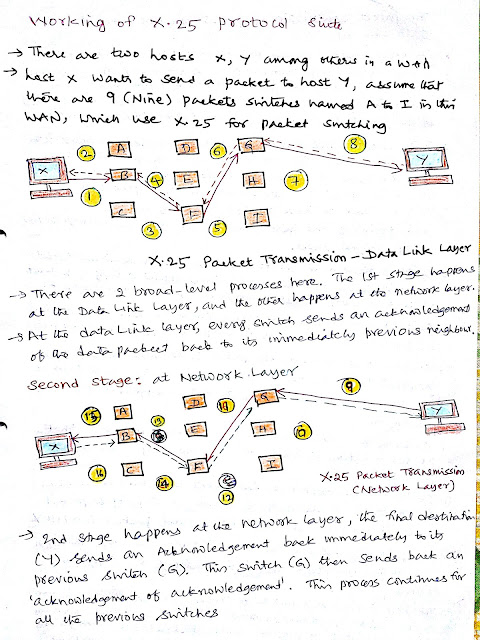 Working of X.25 protocol suite
→ There are two hosts X, Y among others in a WAN
→ host X wants to send a packet to host Y, assume that
there are 9 (Nine) packets switches named A to I in this
WAN, which use X.25 for packet switching
2 A D 6 G 8
X B 4 E H 7 Y
1 C 3 F 5 I
X.25 Packet Transmission - Data Link Layer
→ There are 2 broad-level processes here. The 1st stage happens
at the Data Link Layer, and the other happens at the network layer.
→ At the data Link layer, every switch sends an acknowledgement
of the data packet back to its immediately previous neighbour.
Second Stage: at Network Layer
15 A 13 D 11 G 9
X B E H 10 Y
16 C 14 F 12 I
X.25 Packet Transmission
(Network Layer)
→ 2nd stage happens at the network layer, the final destination
(Y) sends an Acknowledgement back immediately to its
previous switch (G). This switch (G) then sends back an
'acknowledgement of acknowledgement'. This process continues for
all the previous switches